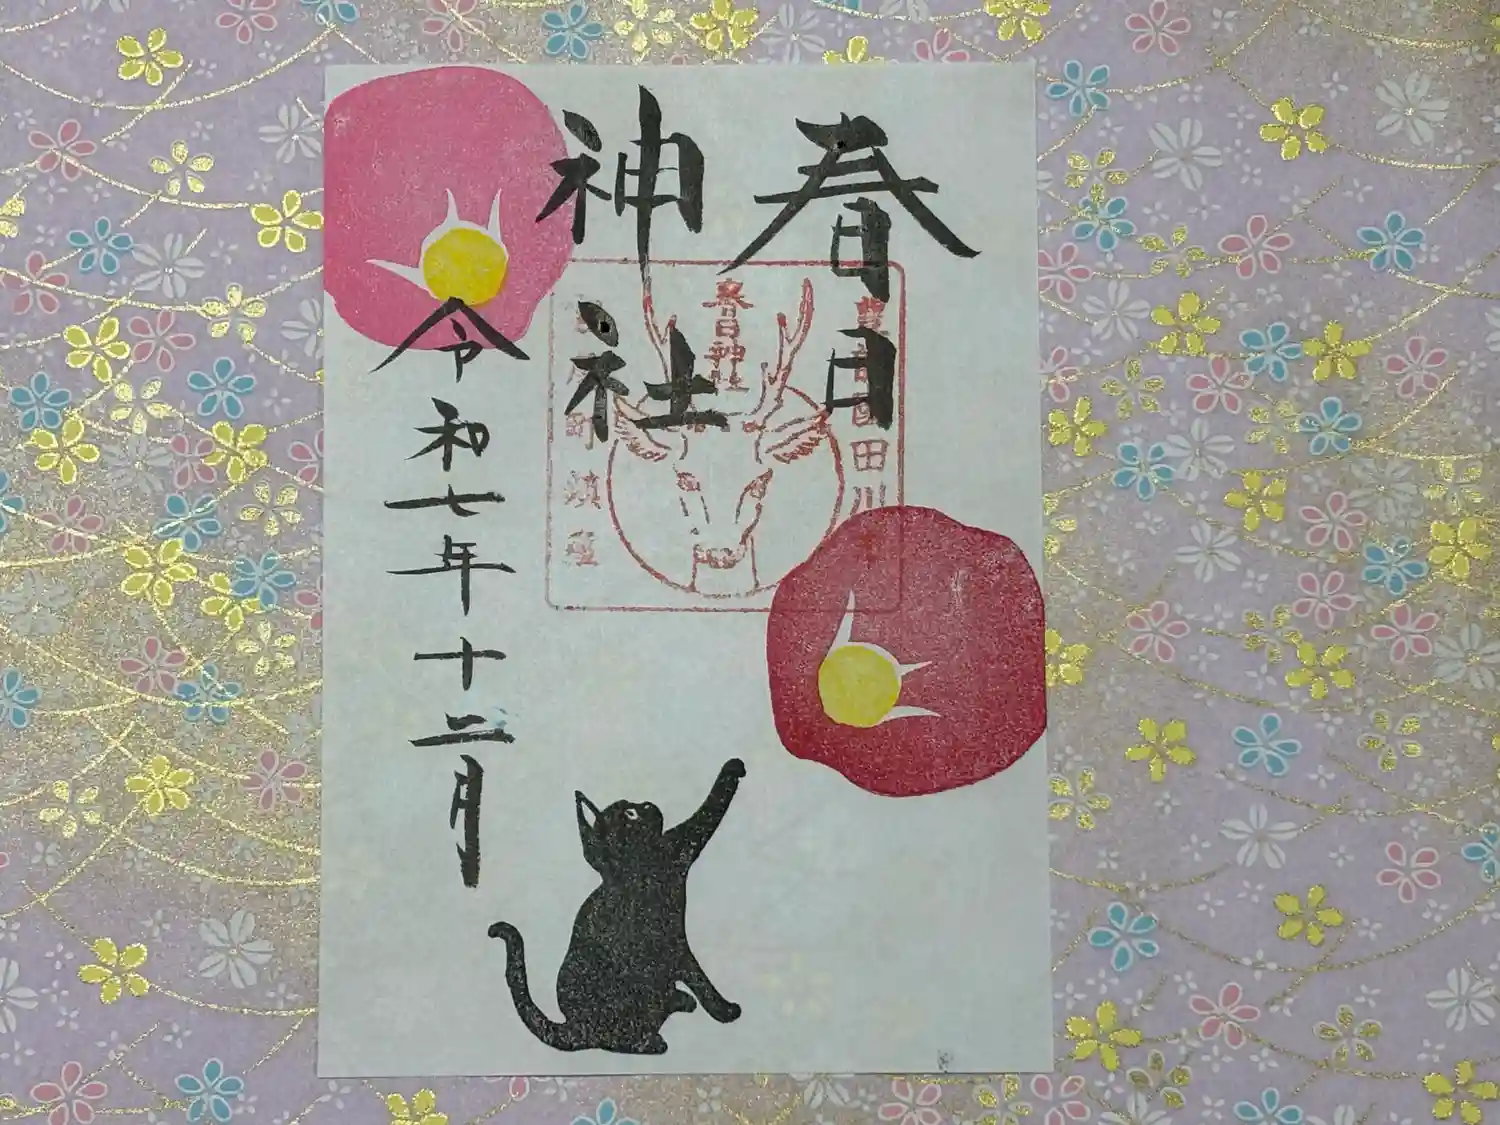 春日
神社
令和七年十二月
春日神社
豊前国田川
町鎮座